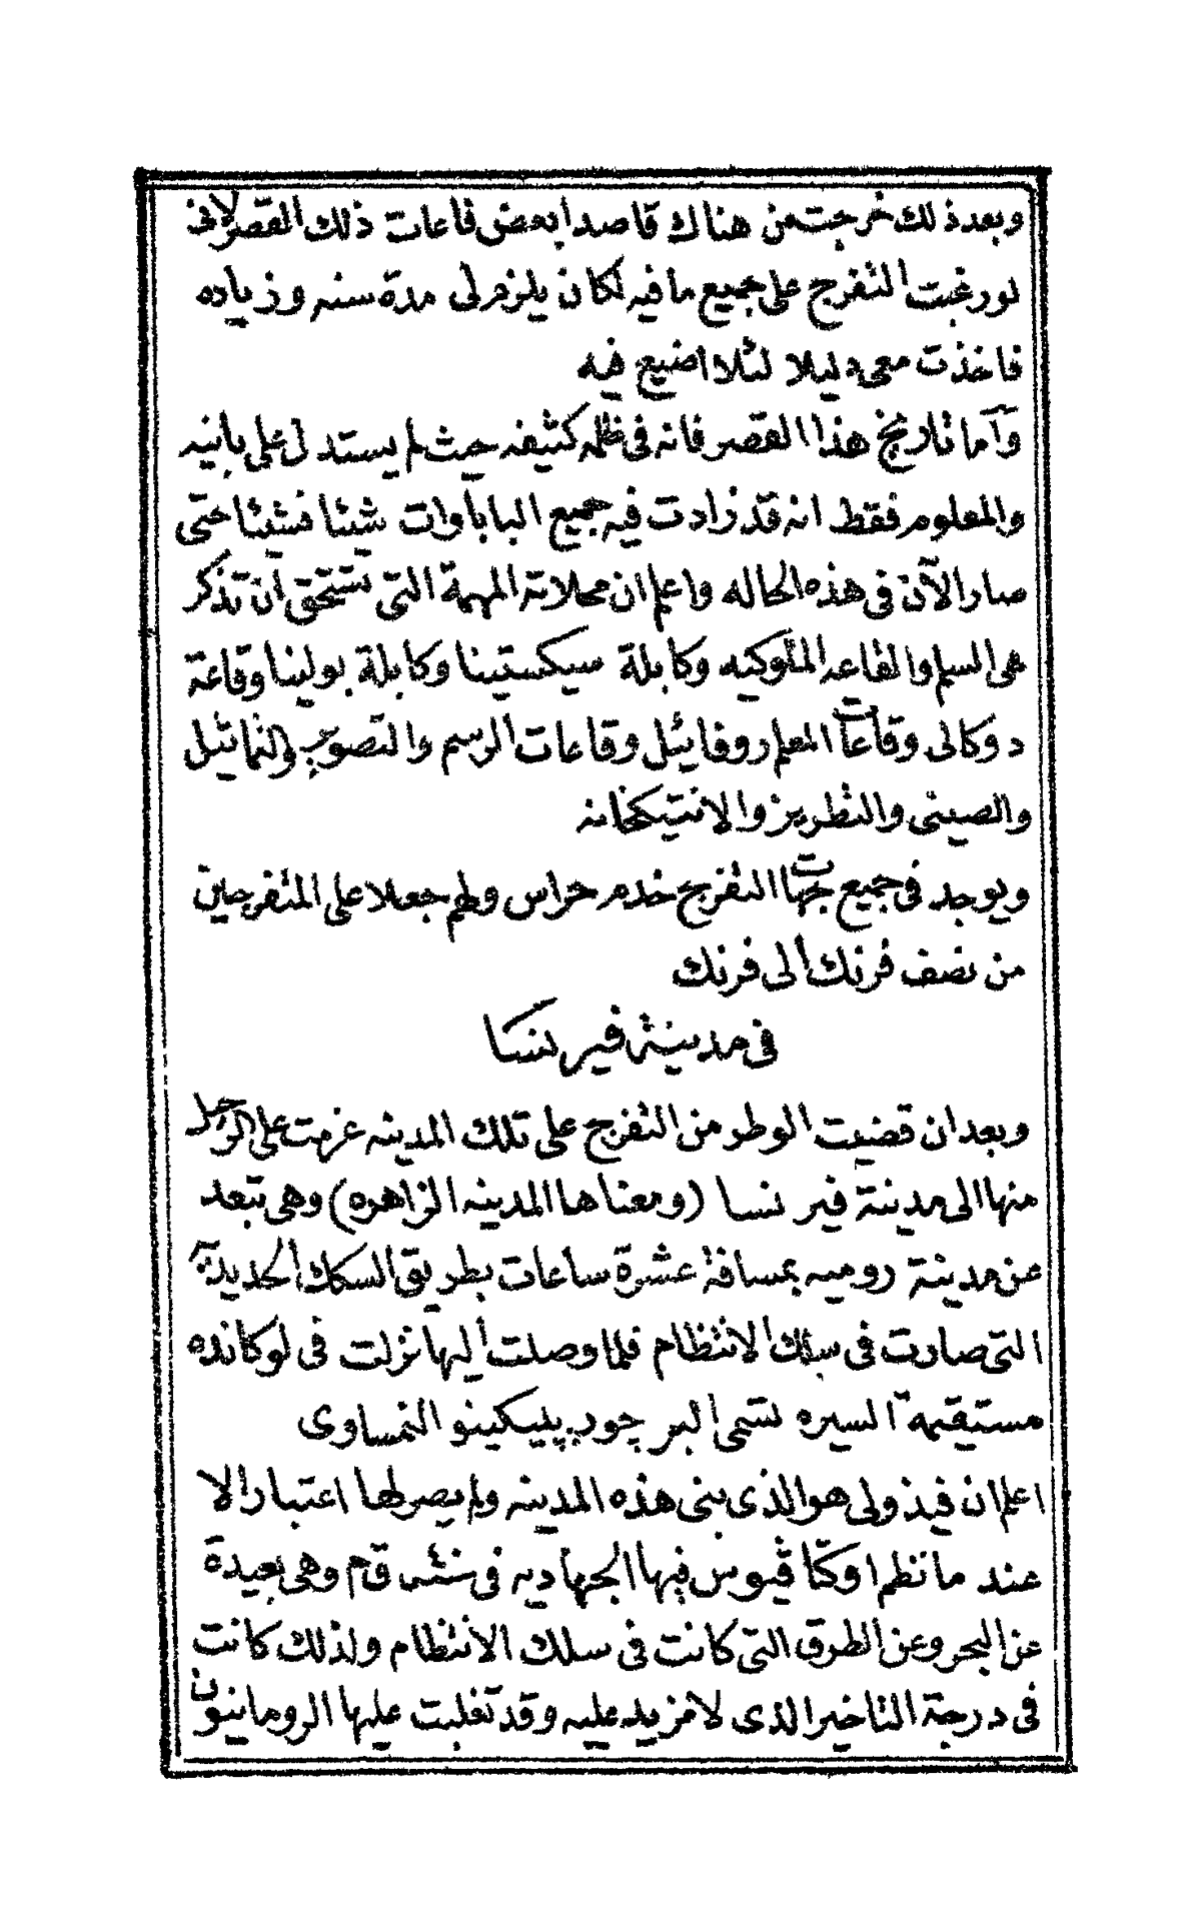 وبعد ذلك خرجت من هناك قاصدا بعض قاعات ذلك القصر لانى
لو رغبت التفرج على جميع ما فيه لكان يلزم لى مدة سنه وزياده
فاخذت معى دليلا لئلا اضيع فيه
وأما تاريخ هذا القصر فانه فى ظلمه كثيفه حيث لم يستدل على بانيه
والمعلوم فقط انه قد زادت فيه جميع الباباوات شيئا فشيئا حتى
صار الآن فى هذه الحاله واعلم ان محلاته المهمة التى تستحق ان تذكر
هى السلم والقاعه الملوكيه وكابلة سيكستينا وكابلة بولينا وقاعة
دوكالى وقاعات المعلم روفائيل وقاعات الرسم والتصوير والتماثيل
والصينى والتطريز والانتيكخانه
ويوجد فى جميع جهات التفرج خدم حراس ولهم جعلا على المتفرجين
من نصف فرنك الى فرنك
فى مدينة فيرنسا
وبعد ان قضيت الوطر من التفرج على تلك المدينه عزمت على الرحيل
منها الى مدينة فيرنسا (ومعناها المدينه الزاهره) وهى تبعد
عن مدينة روميه بمسافة عشرة ساعات بطريق السكك الحديدية
التى صارت فى سلك الانتظام فلما وصلت اليها نزلت فى لوكانده
مستقيمة السيره تسمى البرچو دپييكينو النمساوى
اعلم ان فيذولى هو الذى بنى هذه المدينه ولم يصر لها اعتبار الا
عند ما نظم اوكتاڤيوس فيها الجهاديه فى سنة ق م وهى بعيدة
عن البحر وعن الطرق التى كانت فى سلك الانتظام ولذلك كانت
فى درجة التاخير الذى لا مزيد عليه وقد تغلبت عليها الرومانيون